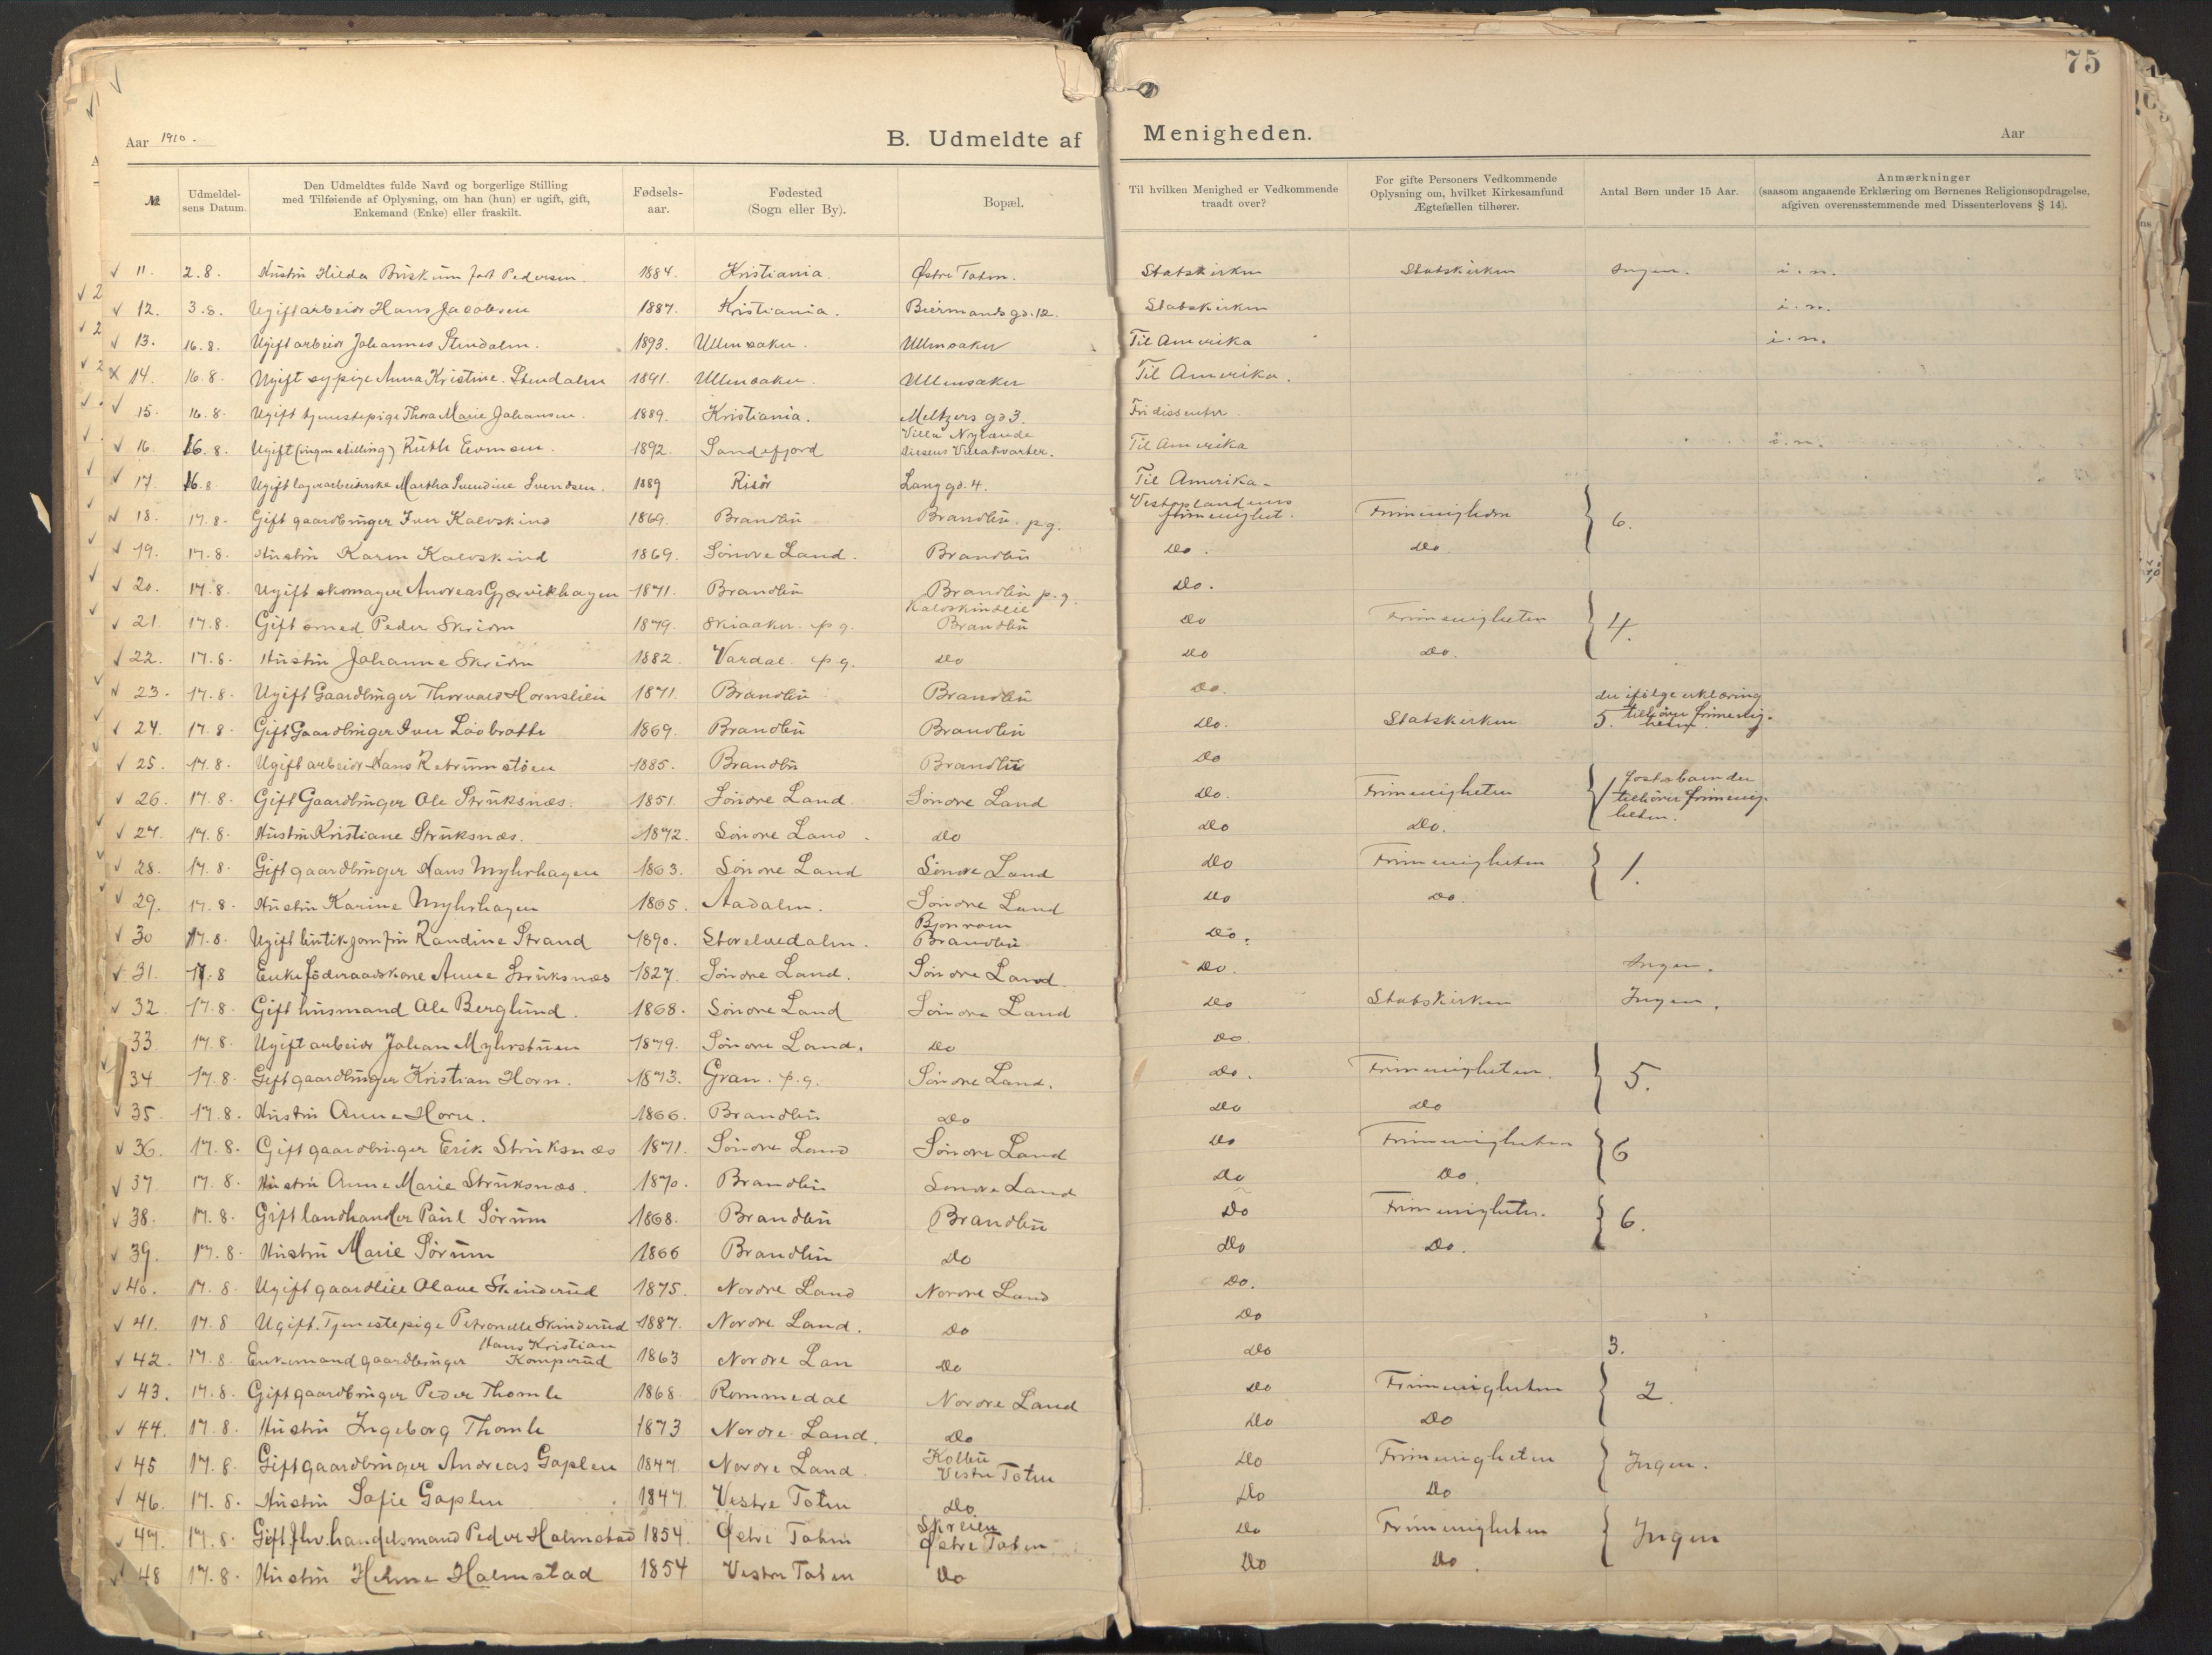 75
Aar 1910.
B. Udmeldte af Menigheden.
Aar
№
Udmeldelsens Datum.
Den Udmeldtes fulde Navn og borgerlige Stilling med Tilføiende af Oplysning, om han (hun) er ugift, gift, Enkemand (Enke) eller fraskilt.
Fødselsaar.
Fødested (Sogn eller By).
Bopæl.
Til hvilken Menighed er Vedkommende traadt over?
For gifte Personers Vedkommende Oplysning om, hvilket Kirkesamfund Ægtefællen tilhører.
Antal Børn under 15 Aar.
Anmærkninger (saasom angaaende Erklæring om Børnenes Religionsopdragelse, afgiven overensstemmende med Dissenterlovens § 14).
11. 2.8. Hustru Hilda Briskum født Pedersen. 1884. Kristiania. Østre Toten. Statskirken Statskirken Ingen. i.n.
12. 3.8. Ugift arbeider Hans Jacobsen 1887. Kristiania. Biermands gd. 12. Statskirken i.n.
13. 16.8. Ugift arbeider Johannes Stendalen. 1893. Ullensaker. Ullensaker Til Amerika i.n.
14. 16.8. Ugift sypige Anna Kristine Stendalen 1891. Ullensaker. Ullensaker Til Amerika.
15. 16.8. Ugift tjenestepige Thora Marie Johansen. 1889. Kristiania. Meltzers gd 3. Fri dissenter.
16. 16.8. Ugift (ingen stilling) Ruth Evensen. 1892. Sandefjord Villa Nylænde Villakvarter. Til Amerika i.n.
17. 16.8 Ugift lagerarbeiderske Martha Svendine Svendsen. 1889 Risör Lang gd. 4. Til Amerika.
18. 17.8. Gift gaardbruger Iver Kalvskind 1869. Brandbu Brandbu p.g. Vestoplandenes frimenighet. Frimenigheden 6.
19. 17.8. Hustru Karen Kalvskind 1869. Söndre Land. Brandbu Do. Do.
20. 17.8. Ugift skomager Andreas Gjærvikhagen 1871. Brandbu Brandbu p.g. Do.
21. 17.8. Gift smed Peder Skriden 1879. Skiaaker p.g. Kalvskindeie Brandbu Do Frimenigheten 4.
22. 17.8. Hustru Johanne Skriden 1882. Vardal p.g. Do Do Do.
23. 17.8. Ugift Gaardbruger Thorvald Hornslien 1871. Brandbu Brandbu Do.
24. 17.8. Gift Gaardbruger Iver Lösbratte 1869. Brandbu Brandbu Do. Statskirken 5. der ifölge erklæring tilhörer frimenigheten.
25. 17.8. Ugift arbeider Hans Retrumstöen 1885. Brandbu Brandbu Do
26. 17.8. Gift Gaardbruger Ole Struksnæs. 1851. Söndre Land. Söndre Land Do. Frimenigheten 1 fosterbarn der tilhörer frimenigheten.
27. 17.8. Hustru Kristiane Struksnæs. 1872. Söndre Land Do Do Do.
28. 17.8. Gift gaardbruger Hans Myhrhagen 1863. Söndre Land Söndre Land Do Frimenigheten 1.
29. 17.8. Hustru Karine Myhrhagen 1865. Aadalen. Söndre Land Do Do.
30 17.8. Ugift butikjomfru Randine Strand 1890. Storelvedalen. Brandbu Do.
31. 17.8 Enke Föderaadskone Anne Struksnæs 1827. Söndre Land. Söndre Land Do. Ingen.
32. 17.8. Gift husmand Ole Berglund. 1868. Söndre Land Söndre Land Do Statskirken Ingen.
33. 17.8. Ugift arbeider Johan Myhrstuen 1879. Söndre Land. Do Do.
34 17.8. Gift gaardbruger Kristian Horn. 1873. Gran p.g. Söndre Land. Do. Frimenigheten. 5.
35. 17.8. Hustru Anne Horn. 1866. Brandbu Do Do Do
36. 17.8. Gift gaardbruger Erik Struksnæs 1871. Söndre Land Söndre Land Do Frimenigheten 6
37. 17.8. Hustru Anne Marie Struksnæs. 1870. Brandbu Söndre Land Do Do.
38. 17.8. Gift landhandler Paul Sörum 1868. Brandbu Brandbu Do Frimenigheten. 6.
39. 17.8. Hustru Marie Sörum 1866 Brandbu Do Do Do.
40. 17.8. Ugift gaardbr. Olaus Skinderud 1875. Nordre Land Nordre Land Do.
41. 17.8 Ugift. Tjenestepige Petronelle Skinderud 1887. Nordre Land. Do Do
42. 17.8. Enkemand gaardbruger Hans Kristian Komperud 1863 Nordre Lan Do Do 3.
43. 17.8. Gift gaardbruger Peder Thomle 1868. Rommedal Nordre Land Do Frimenigheten 2.
44. 17.8. Hustru Ingeborg Thomle 1873 Nordre Land. Do Do Do
45 17.8. Gift gaardbruger Andreas Gaplen 1847 Nordre Land. Kolbu Vestre Toten Do Frimenigheten Ingen.
46. 17.8. Hustru Sofie Gaplen 1847. Vestre Toten Do Do Do
47. 17.8. Gift fhv. handelsmand Peder Halmstad 1854. Østre Toten Skreien Østre Toten Do Frimenigheten Ingen
48 17.8. Hustru Helene Halmstad 1854 Vestre Toten Do Do Do.